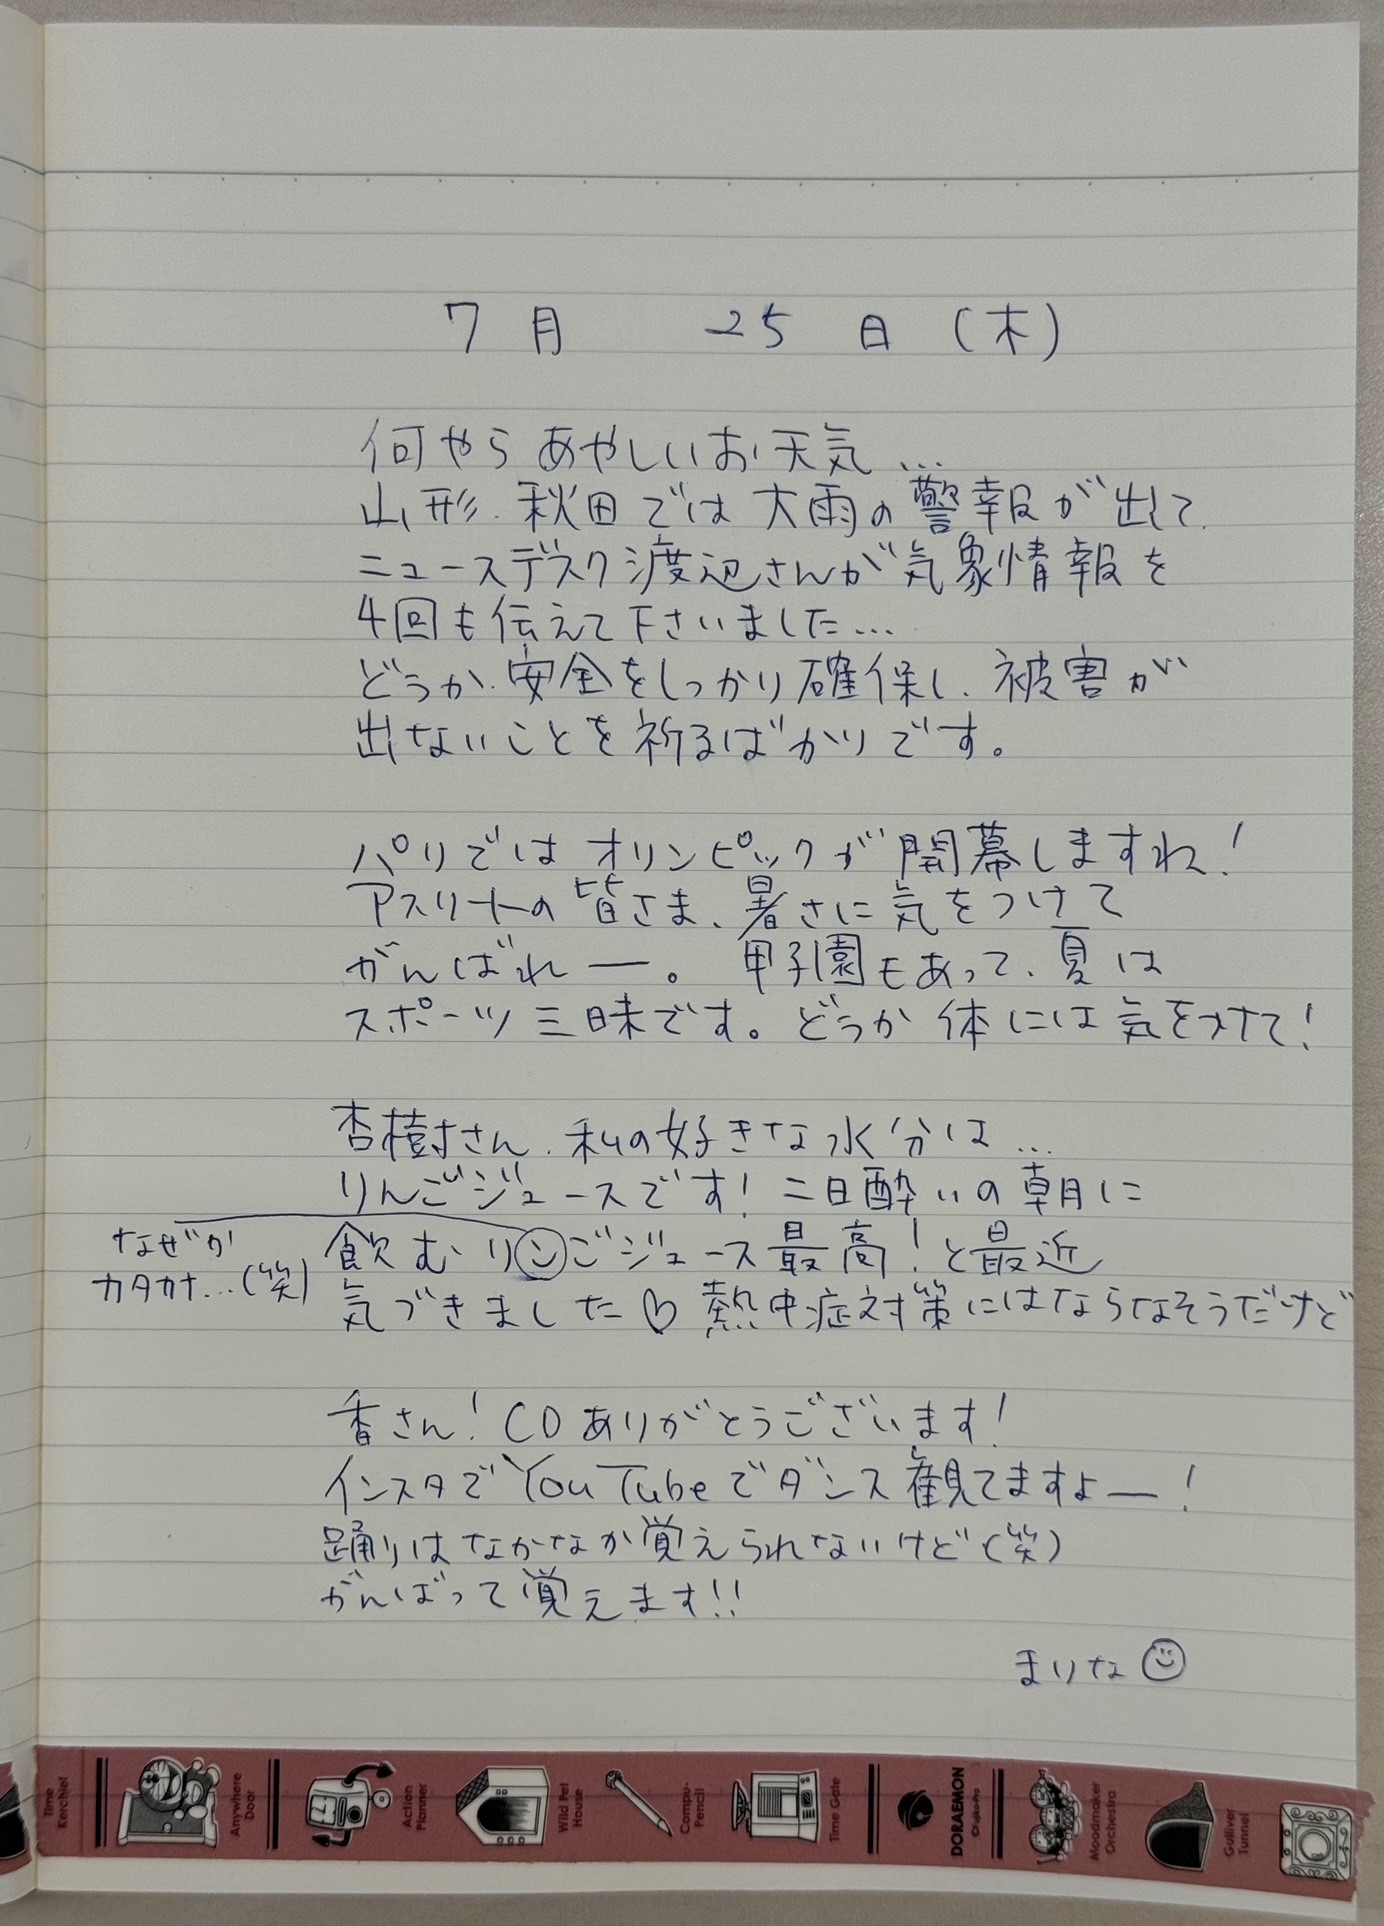 7月 25日(木)
何やらあやしいお天気…
山形、秋田では大雨の警報が出て、
ニュースデスク渡辺さんが気象情報を
4回も伝えて下さいました…
どうか、安全をしっかり確保し、被害が
出ないことを祈るばかりです。
パリではオリンピックが開幕しますね!
アスリートの皆さま、暑さに気をつけて
がんばれー。甲子園もあって、夏は
スポーツ三昧です。どうか体には気をつけて!
杏樹さん、私の好きな水分は…
りんごジュースです!二日酔いの朝に
飲むリンごジュース最高!と最近
気づきました♡熱中症対策にはならなそうだけど
なぜか
カタカナ…(笑)
香さん!CDありがとうございます!
インスタでYouTubeでダンス観てますよー!
踊りはなかなか覚えられないけど(笑)
がんばって覚えます!!
まりな☺
Time Kerchief
Anywhere Door
Action Planner
Wild Pet House
Compu-Pencil
Time Gate
DORAEMON
©Fujiko-Pro
Moodmaker Orchestra
Gulliver Tunnel